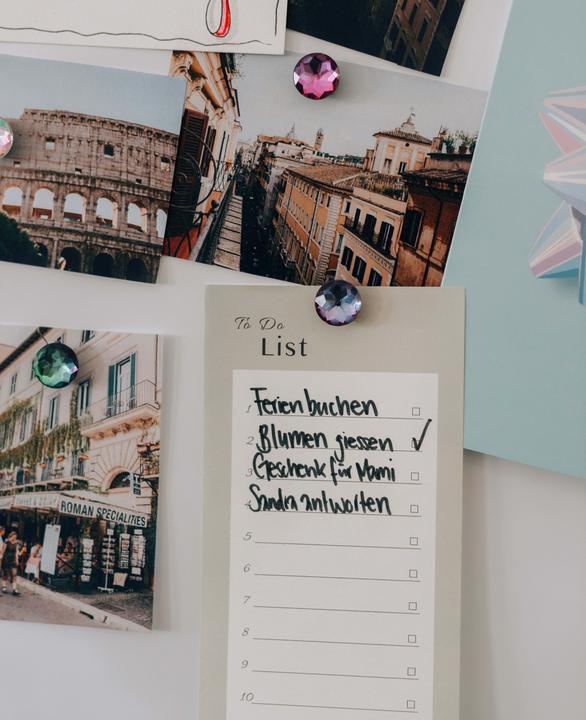 ROMAN SPECIALITIES
To Do
List
1 Ferien buchen
2 Blumen giessen ✓
3 Geschenk für Mami
4 Sandra antworten
5
6
7
8
9
10